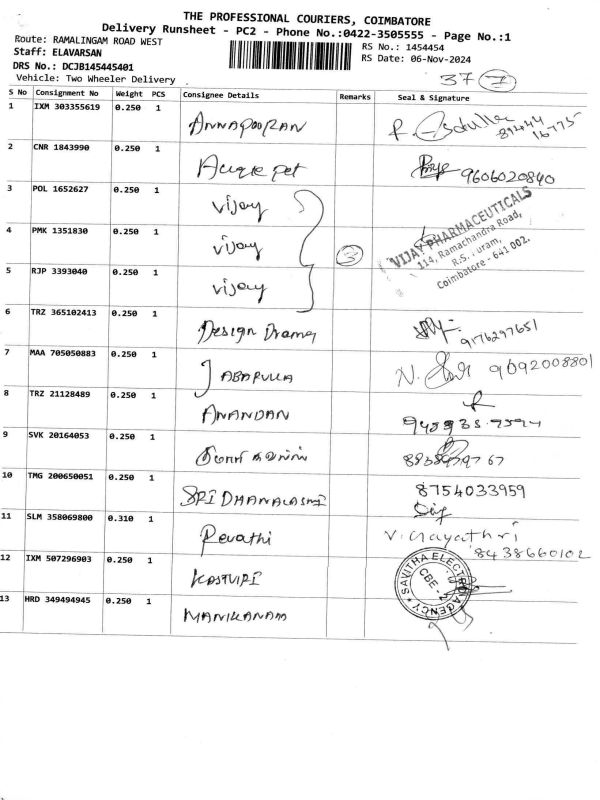 THE PROFESSIONAL COURIERS, COIMBATORE
Delivery Runsheet - PC2 - Phone No.:0422-3505555 - Page No.:1
Route: RAMALINGAM ROAD WEST
RS No.: 1454454
Staff: ELAVARSAN
RS Date: 06-Nov-2024
DRS No.: DCJB145445401
Vehicle: Two Wheeler Delivery
37 7
S No Consignment No Weight PCS Consignee Details Remarks Seal & Signature
1 IXM 303355619 0.250 1 ANNAPOORAN
2 CNR 1843990 0.250 1 9606020840
3 POL 1652627 0.250 1 Vijay
4 PMK 1351830 0.250 1 Vijay 3
VIJAY PHARMACEUTICALS
114, Ramachandra Road,
R.S.
Coimbatore - 641 002.
5 RJP 3393040 0.250 1 Vijay
6 TRZ 365102413 0.250 1 Design 9176297651
7 MAA 705050883 0.250 1 9092008801
8 TRZ 21128489 0.250 1 ANANDAN
9 SVK 20164053 0.250 1
10 TMG 200650051 0.250 1 8754033959
11 SLM 358069800 0.310 1 Revathi
8438660102
12 IXM 507296903 0.250 1
SAVITHA ELECTRO AGENCY
CBE-2
13 HRD 349494945 0.250 1 MANIKANAM